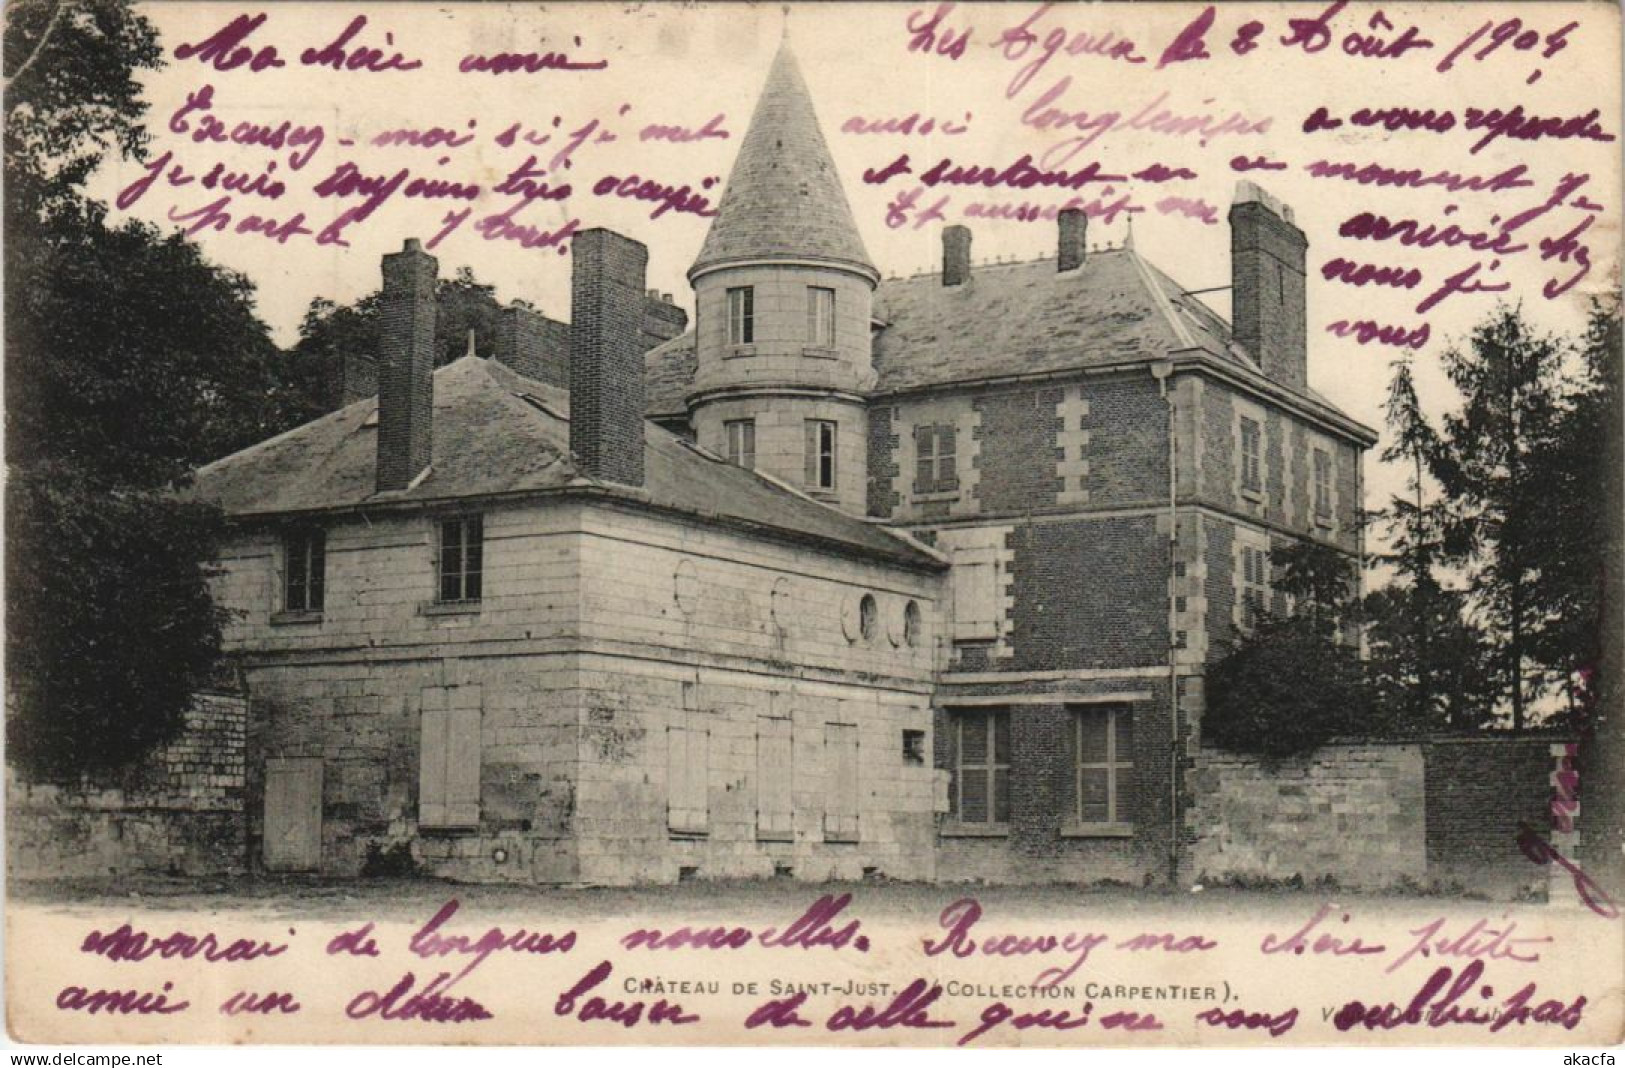 Ma chère amie
Les Ageux le 2 Août 1904
Excusez-moi si jé met aussi longtemps a vous reponde
je suis toujours très occupée et surtout en ce moment Je
part a 7 heures. Et aussitôt mon arrivée chez
nous jé
vous
enverai de longues nouvelles. Recevez ma chère petite
amie un doux baiser de celle qui ne vous oublie pas
CHÂTEAU DE SAINT-JUST. (COLLECTION CARPENTIER).
akacfa